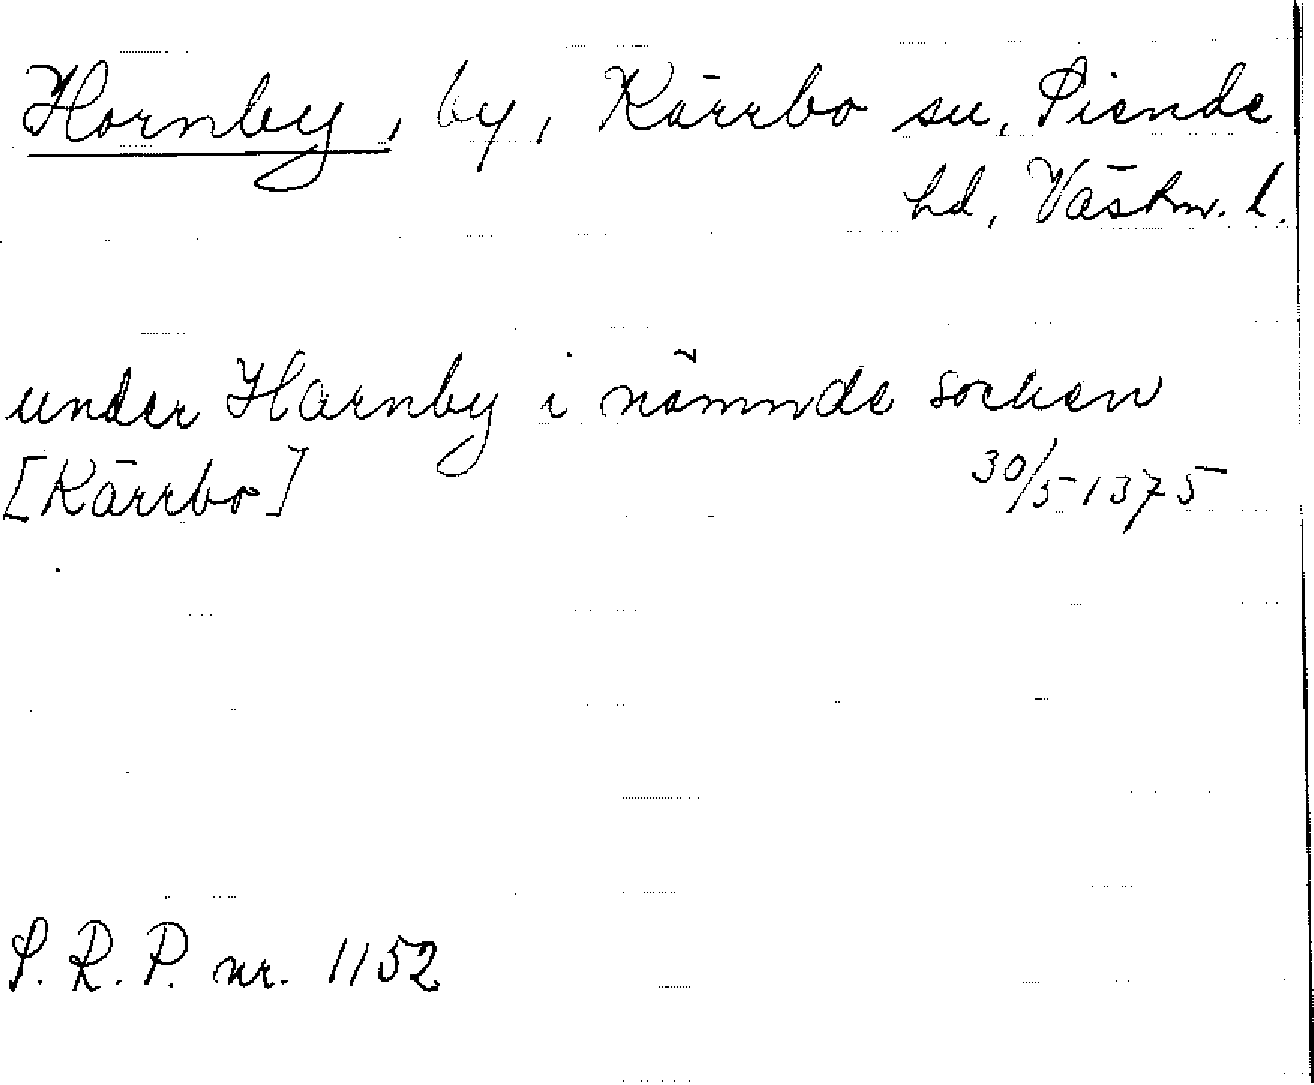 Hornby, by, Kärrbo sn, Siende
hd, Västm. l.
under Harnby i nämnde socken
[Kärrbo] 30/5 1375
S. R. P. nr. 1152